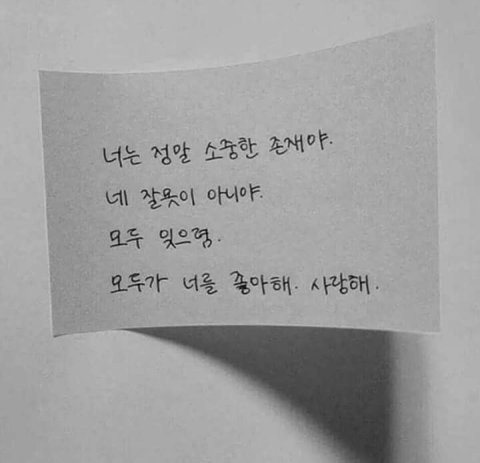 너는 정말 소중한 존재야.
네 잘못이 아니야.
모두 잊으렴.
모두가 너를 좋아해. 사랑해.